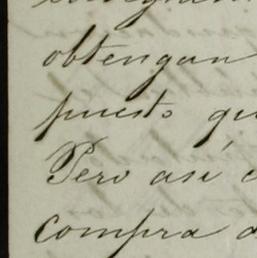 obtengan
puesto qu
Pero así c
compra d